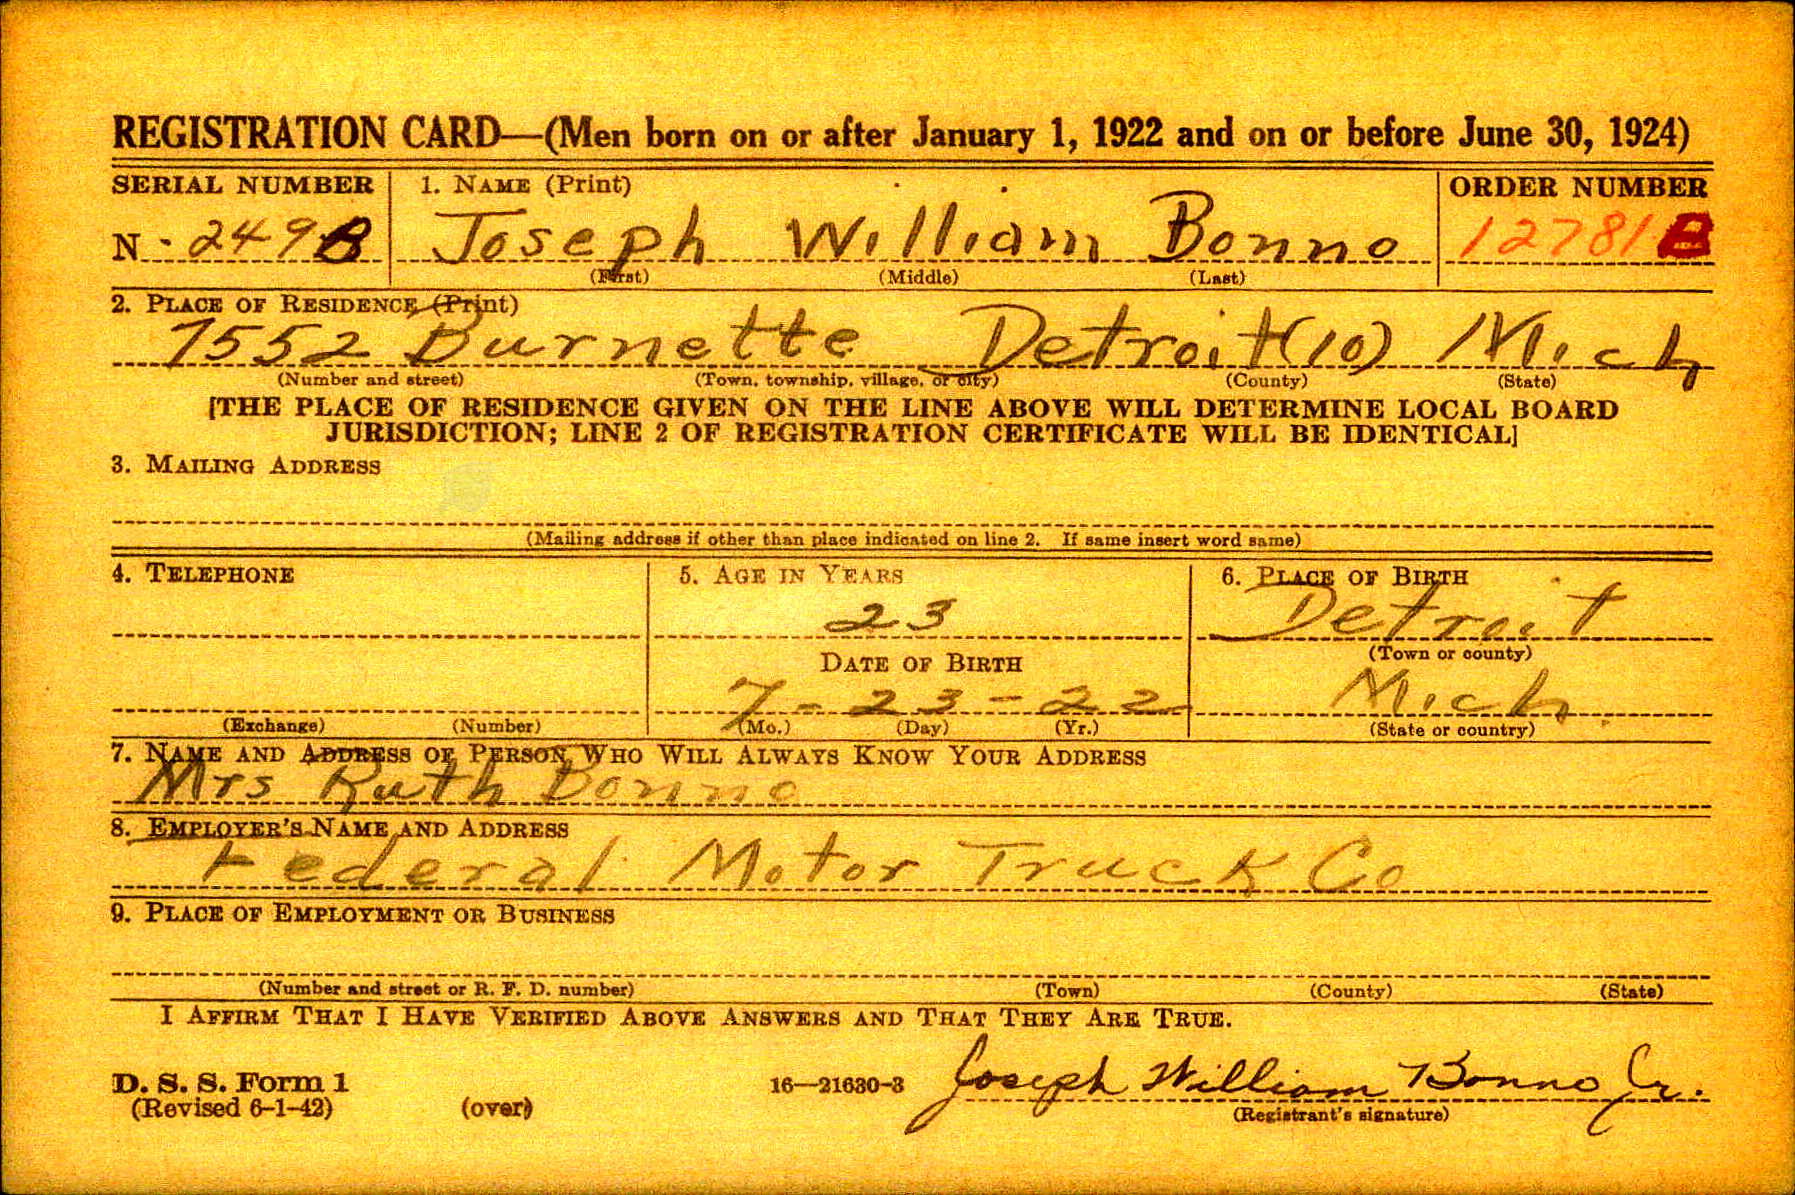 REGISTRATION CARD—(Men born on or after January 1, 1922 and on or before June 30, 1924)
SERIAL NUMBER 1. NAME (Print) ORDER NUMBER
N - 249 B Joseph William Bonno 12781 B
(First) (Middle) (Last)
2. PLACE OF RESIDENCE (Print)
7552 Burnette Detroit (10) Mich
(Number and street) (Town, township, village, or city) (County) (State)
[THE PLACE OF RESIDENCE GIVEN ON THE LINE ABOVE WILL DETERMINE LOCAL BOARD
JURISDICTION; LINE 2 OF REGISTRATION CERTIFICATE WILL BE IDENTICAL]
3. MAILING ADDRESS
(Mailing address if other than place indicated on line 2. If same insert word same)
4. TELEPHONE 5. AGE IN YEARS 6. PLACE OF BIRTH
23 Detroit
(Town or county)
DATE OF BIRTH
7-23-22 Mich.
(Exchange) (Number) (Mo.) (Day) (Yr.) (State or country)
7. NAME AND ADDRESS OF PERSON WHO WILL ALWAYS KNOW YOUR ADDRESS
Mrs Ruth Bonno
8. EMPLOYER'S NAME AND ADDRESS
Federal Motor Truck Co
9. PLACE OF EMPLOYMENT OR BUSINESS
(Number and street or R. F. D. number) (Town) (County) (State)
I AFFIRM THAT I HAVE VERIFIED ABOVE ANSWERS AND THAT THEY ARE TRUE.
D. S. S. Form 1 16—21630-3 Joseph William Bonno Jr.
(Revised 6-1-42) (over) (Registrant's signature)